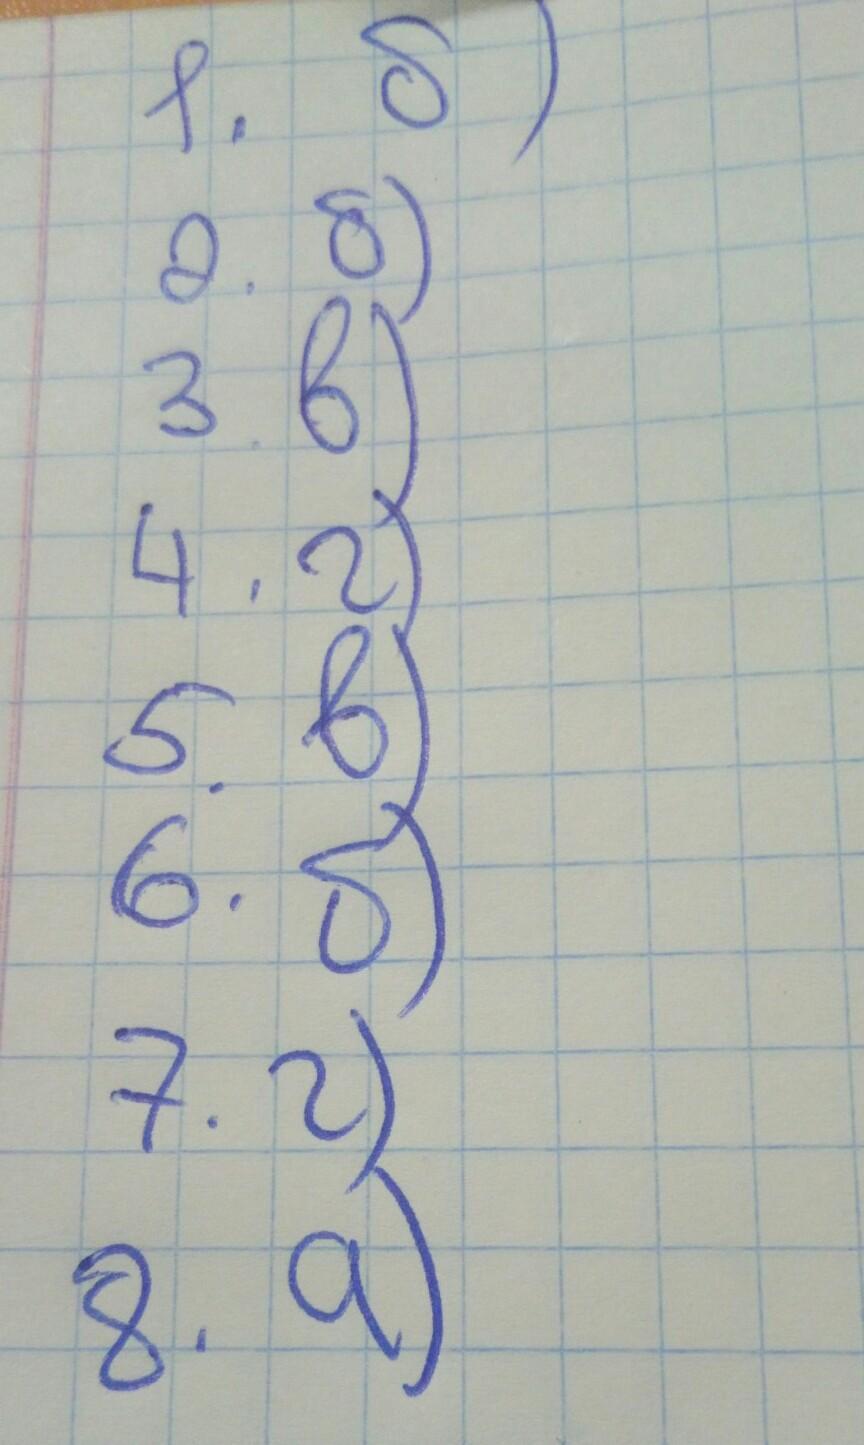 1. б)
2. б)
3. в)
4. г)
5. в)
6. б)
7. г)
8. а)